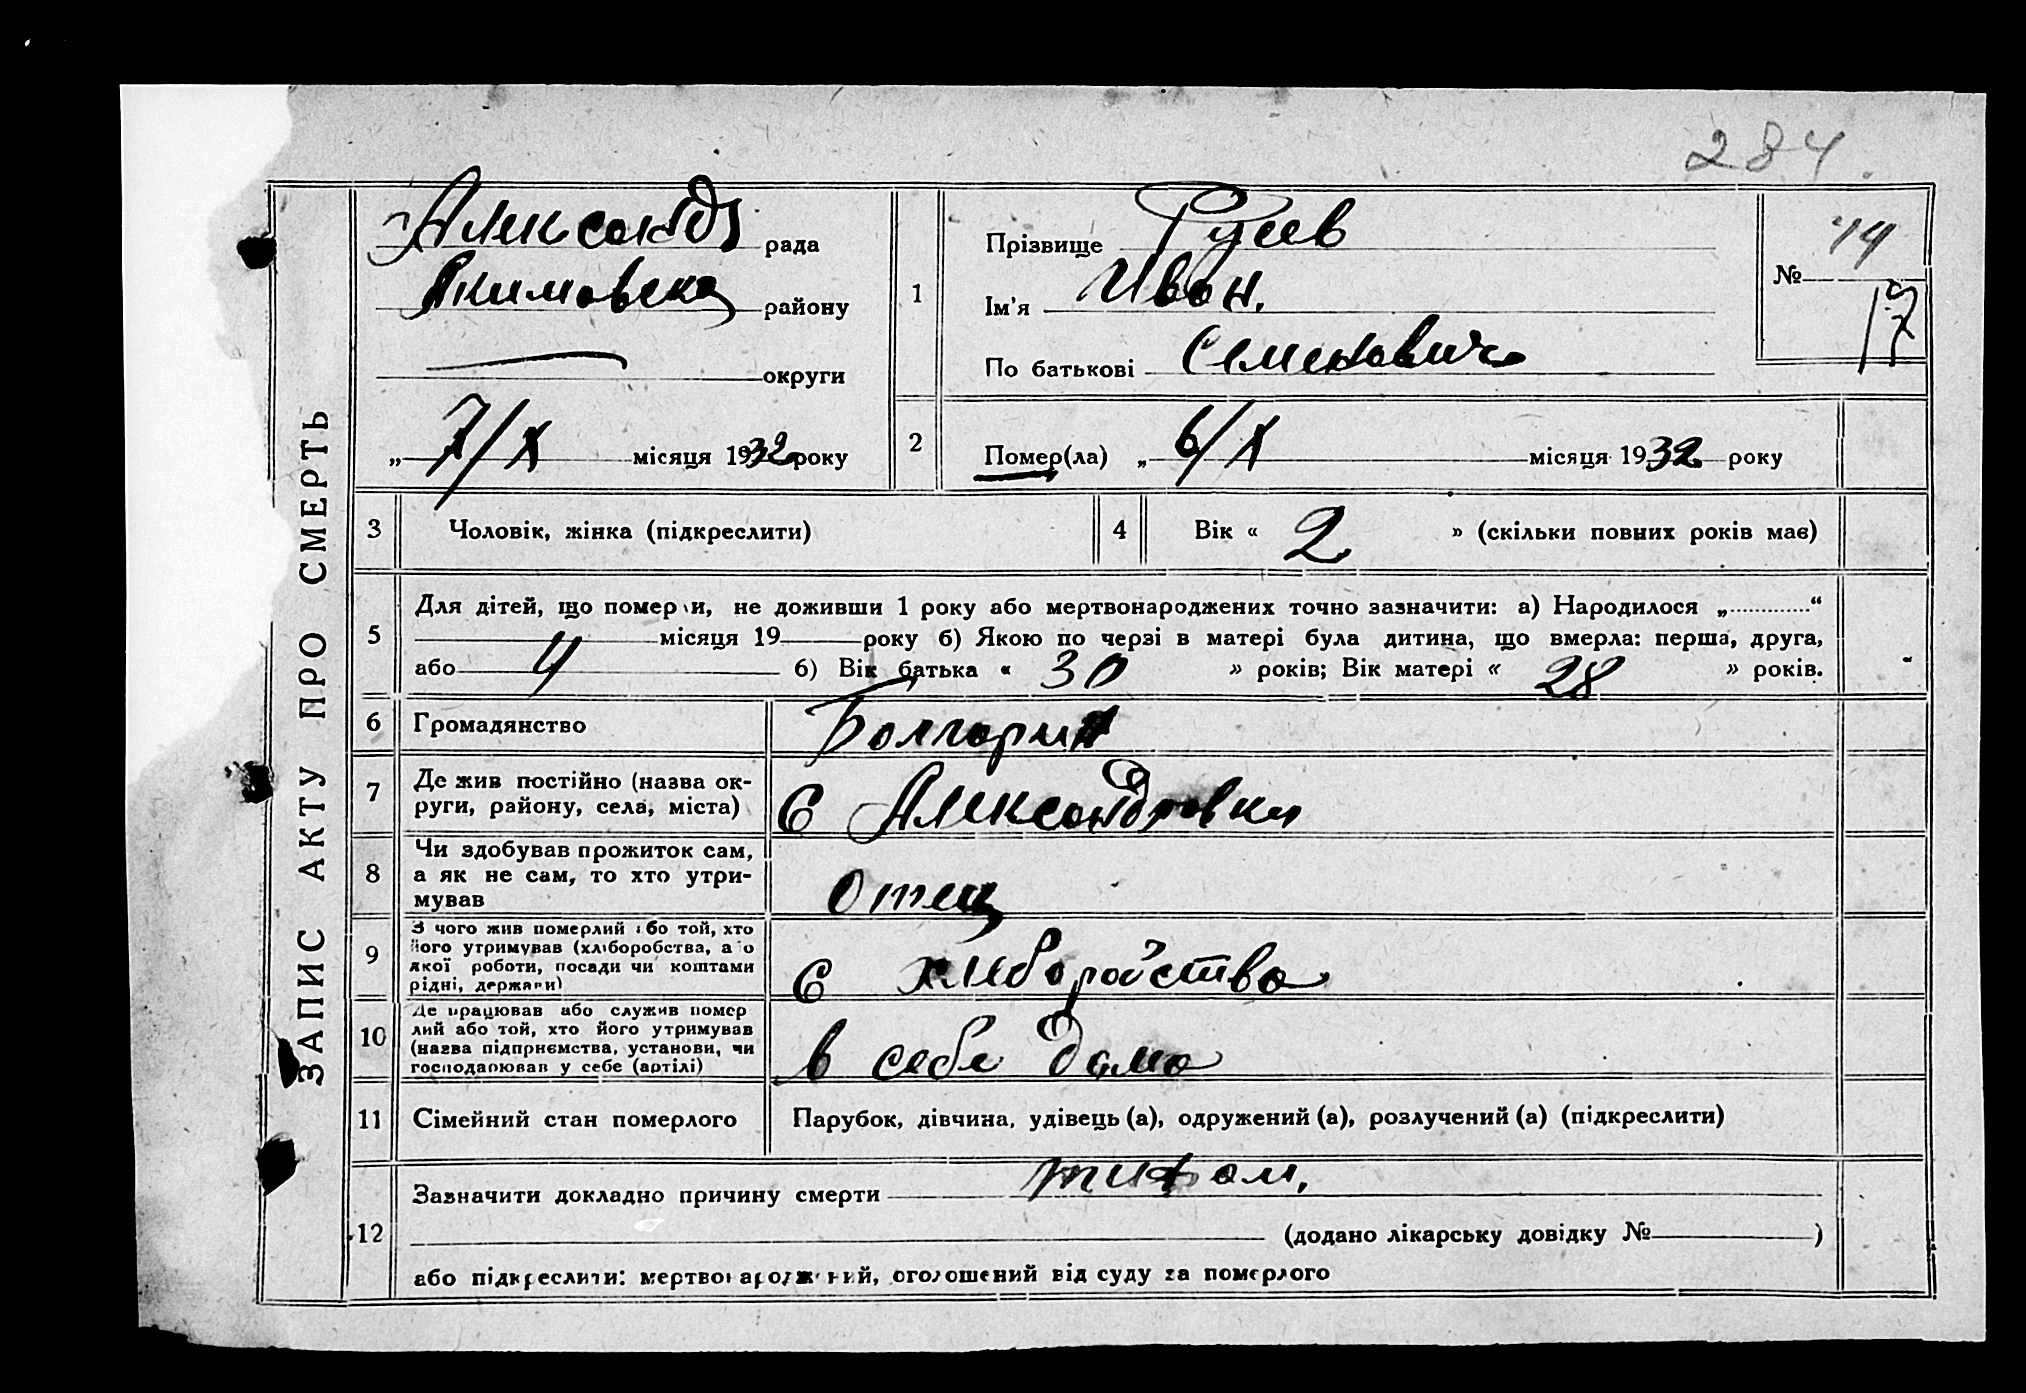 284
ЗАПИС АКТУ ПРО СМЕРТЬ
Александ рада
Якимовска району
округи
„ 7/X місяця 1932 року
1
Прізвище Русев
Ім'я Иван.
По батькові Семенович
№ 14
17
2
Помер(ла) „ 6/X місяця 1932 року
3 Чоловік, жінка (підкреслити)
4 Вік « 2 » (скільки повних років має)
5
Для дітей, що померли, не доживши 1 року або мертвонароджених точно зазначити: а) Народилося „ “
місяця 19 року б) Якою по черзі в матері була дитина, що вмерла: перша, друга,
або 4 б) Вік батька « 30 » років; Вік матері « 28 » років.
6 Громадянство Болгарин
7 Де жив постійно (назва ок-
руги, району, села, міста) С Александровки
8 Чи здобував прожиток сам,
а як не сам, то хто утри-
мував отец
9 З чого жив померлий або той, хто
його утримував (хліборобства, або
якої роботи, посади чи коштами
рідні, держави) С хлеборобства
10 Де працював або служив помер
лий або той, хто його утримував
(назва підприємства, установи, чи
господарював у себе (артілі) в себе дома
11 Сімейний стан померлого Парубок, дівчина, удівець (а), одружений (а), розлучений (а) (підкреслити)
12
Зазначити докладно причину смерти тифом,
(додано лікарську довідку № )
або підкреслити: мертвонароджений, оголошений від суду за померлого